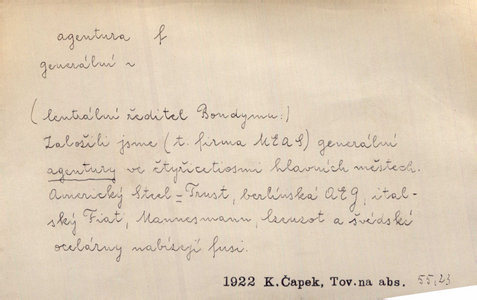 agentura f
generální ~
(Centrální ředitel Bondymu:)
Založili jsme (t. firma MEAS) generální
agentury ve čtyřicetiosmi hlavních městech.
Americký Steel=Trust, berlínská AEG, ital-
ský Fiat, Mannesmann, Creuzot a švédské
ocelárny nabízejí fusi.
1922 K.Čapek, Tov.na abs. 55,23